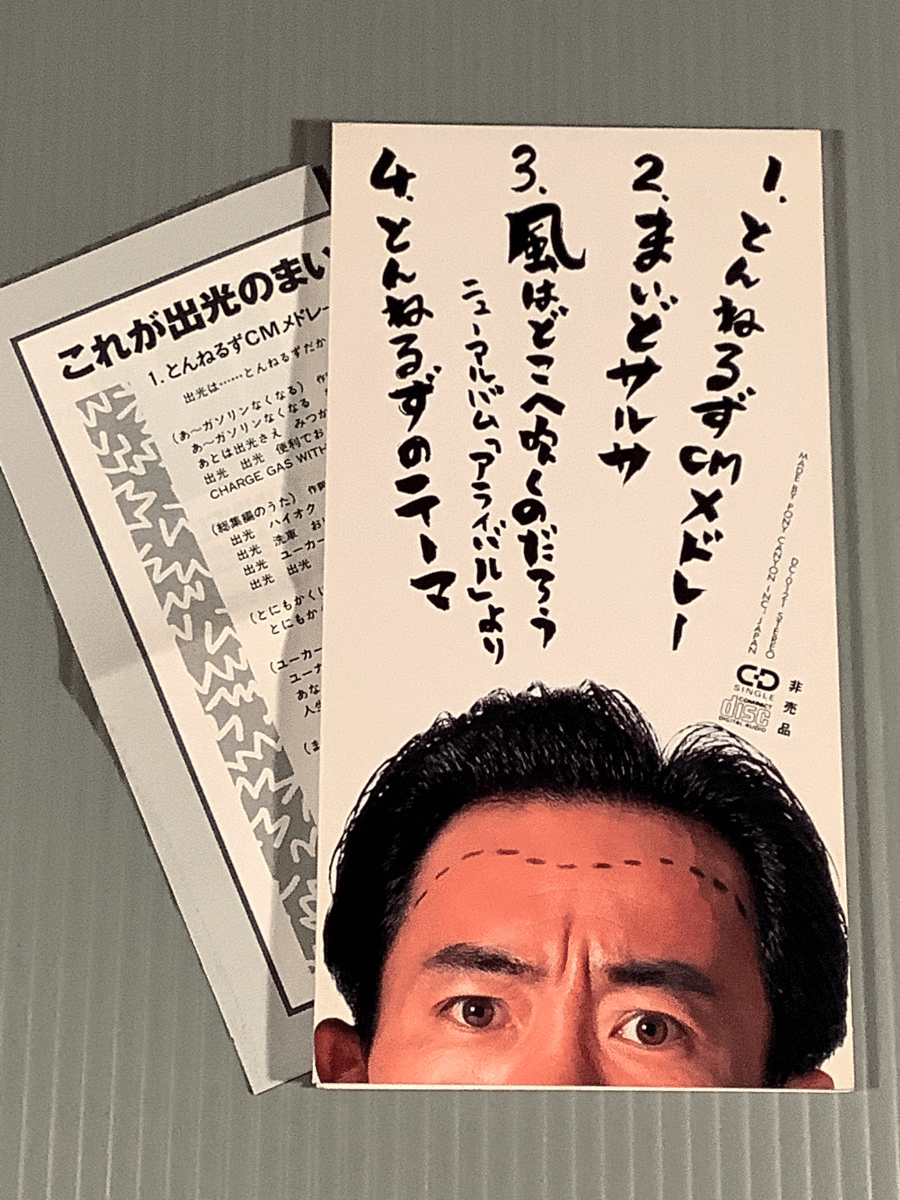 1.とんねるずCMメドレー
2.まいどサルサ
3.風はどこへ吹くのだろう
ニューアルバム「アライバル」より
4.とんねるずのテーマ
MADE BY PONY CANYON INC. JAPAN
STEREO
CD
SINGLE
COMPACT
disc
DIGITAL AUDIO
非売品
これが出光のまい
1.とんねるずCMメドレー
出光は……とんねるずだか
(あ〜ガソリンなくなる)
あ〜ガソリンなくなる
あとは出光さえ みつか
出光 出光 便利でお
CHARGE GAS WITH
(総集編のうた) 作詞
出光 ハイオク
出光 洗車 お
出光 ユーカー
出光 出光
(とにもかく
とにもか
(ユーカー
ユー
あな
人生
(ま